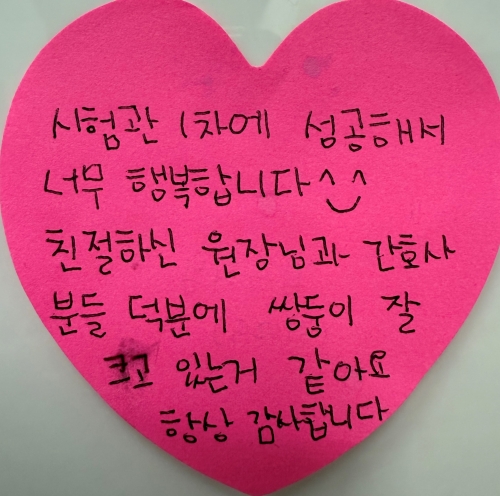 시험관 1차에 성공해서
너무 행복합니다^‿^
친절하신 원장님과 간호사
분들 덕분에 쌍둥이 잘
크고 있는거 같아요
항상 감사합니다